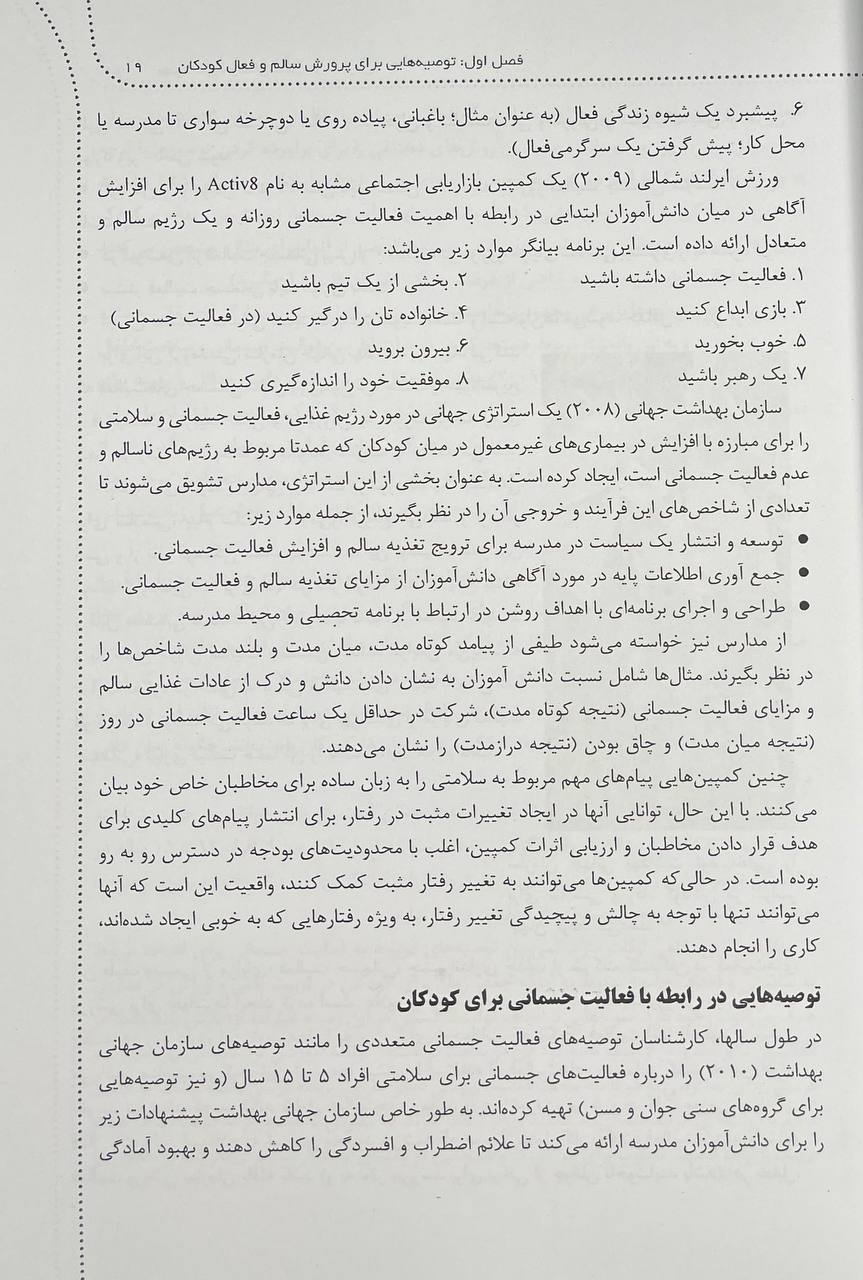 فصل اول: توصیه‌هایی برای پرورش سالم و فعال کودکان ۱۹
۶. پیشبرد یک شیوه زندگی فعال (به عنوان مثال؛ باغبانی، پیاده روی یا دوچرخه سواری تا مدرسه یا
محل کار؛ پیش گرفتن یک سرگرمی‌فعال).
ورزش ایرلند شمالی (۲۰۰۹) یک کمپین بازاریابی اجتماعی مشابه به نام Activ8 را برای افزایش
آگاهی در میان دانش‌آموزان ابتدایی در رابطه با اهمیت فعالیت جسمانی روزانه و یک رژیم سالم و
متعادل ارائه داده است. این برنامه بیانگر موارد زیر می‌باشد:
۱. فعالیت جسمانی داشته باشید ۲. بخشی از یک تیم باشید
۳. بازی ابداع کنید ۴. خانواده تان را درگیر کنید (در فعالیت جسمانی)
۵. خوب بخورید ۶. بیرون بروید
۷. یک رهبر باشید ۸. موفقیت خود را اندازه‌گیری کنید
سازمان بهداشت جهانی (۲۰۰۸) یک استراتژی جهانی در مورد رژیم غذایی، فعالیت جسمانی و سلامتی
را برای مبارزه با افزایش در بیماری‌های غیرمعمول در میان کودکان که عمدتا مربوط به رژیم‌های ناسالم و
عدم فعالیت جسمانی است، ایجاد کرده است. به عنوان بخشی از این استراتژی، مدارس تشویق می‌شوند تا
تعدادی از شاخص‌های این فرآیند و خروجی آن را در نظر بگیرند، از جمله موارد زیر:
● توسعه و انتشار یک سیاست در مدرسه برای ترویج تغذیه سالم و افزایش فعالیت جسمانی.
● جمع آوری اطلاعات پایه در مورد آگاهی دانش‌آموزان از مزایای تغذیه سالم و فعالیت جسمانی.
● طراحی و اجرای برنامه‌ای با اهداف روشن در ارتباط با برنامه تحصیلی و محیط مدرسه.
از مدارس نیز خواسته می‌شود طیفی از پیامد کوتاه مدت، میان مدت و بلند مدت شاخص‌ها را
در نظر بگیرند. مثال‌ها شامل نسبت دانش آموزان به نشان دادن دانش و درک از عادات غذایی سالم
و مزایای فعالیت جسمانی (نتیجه کوتاه مدت)، شرکت در حداقل یک ساعت فعالیت جسمانی در روز
(نتیجه میان مدت) و چاق بودن (نتیجه درازمدت) را نشان می‌دهند.
چنین کمپین‌هایی پیام‌های مهم مربوط به سلامتی را به زبان ساده برای مخاطبان خاص خود بیان
می‌کنند. با این حال، توانایی آنها در ایجاد تغییرات مثبت در رفتار، برای انتشار پیام‌های کلیدی برای
هدف قرار دادن مخاطبان و ارزیابی اثرات کمپین، اغلب با محدودیت‌های بودجه در دسترس رو به رو
بوده است. در حالی‌که کمپین‌ها می‌توانند به تغییر رفتار مثبت کمک کنند، واقعیت این است که آنها
می‌توانند تنها با توجه به چالش و پیچیدگی تغییر رفتار، به ویژه رفتارهایی که به خوبی ایجاد شده‌اند،
کاری را انجام دهند.
توصیه‌هایی در رابطه با فعالیت جسمانی برای کودکان
در طول سالها، کارشناسان توصیه‌های فعالیت جسمانی متعددی را مانند توصیه‌های سازمان جهانی
بهداشت (۲۰۱۰) را درباره فعالیت‌های جسمانی برای سلامتی افراد ۵ تا ۱۵ سال (و نیز توصیه‌هایی
برای گروه‌های سنی جوان و مسن) تهیه کرده‌اند. به طور خاص سازمان جهانی بهداشت پیشنهادات زیر
را برای دانش‌آموزان مدرسه ارائه می‌کند تا علائم اضطراب و افسردگی را کاهش دهند و بهبود آمادگی